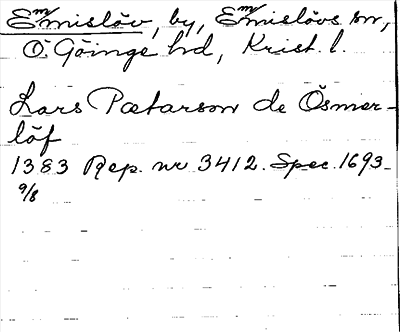 Emmislöv, by, Emmislövs sn,
Ö. Göinge hd, Krist. l.
Lars Pætarson de Ösmer-
löf
1383 Rep. nr 3412. Spec. 1693-
9/8